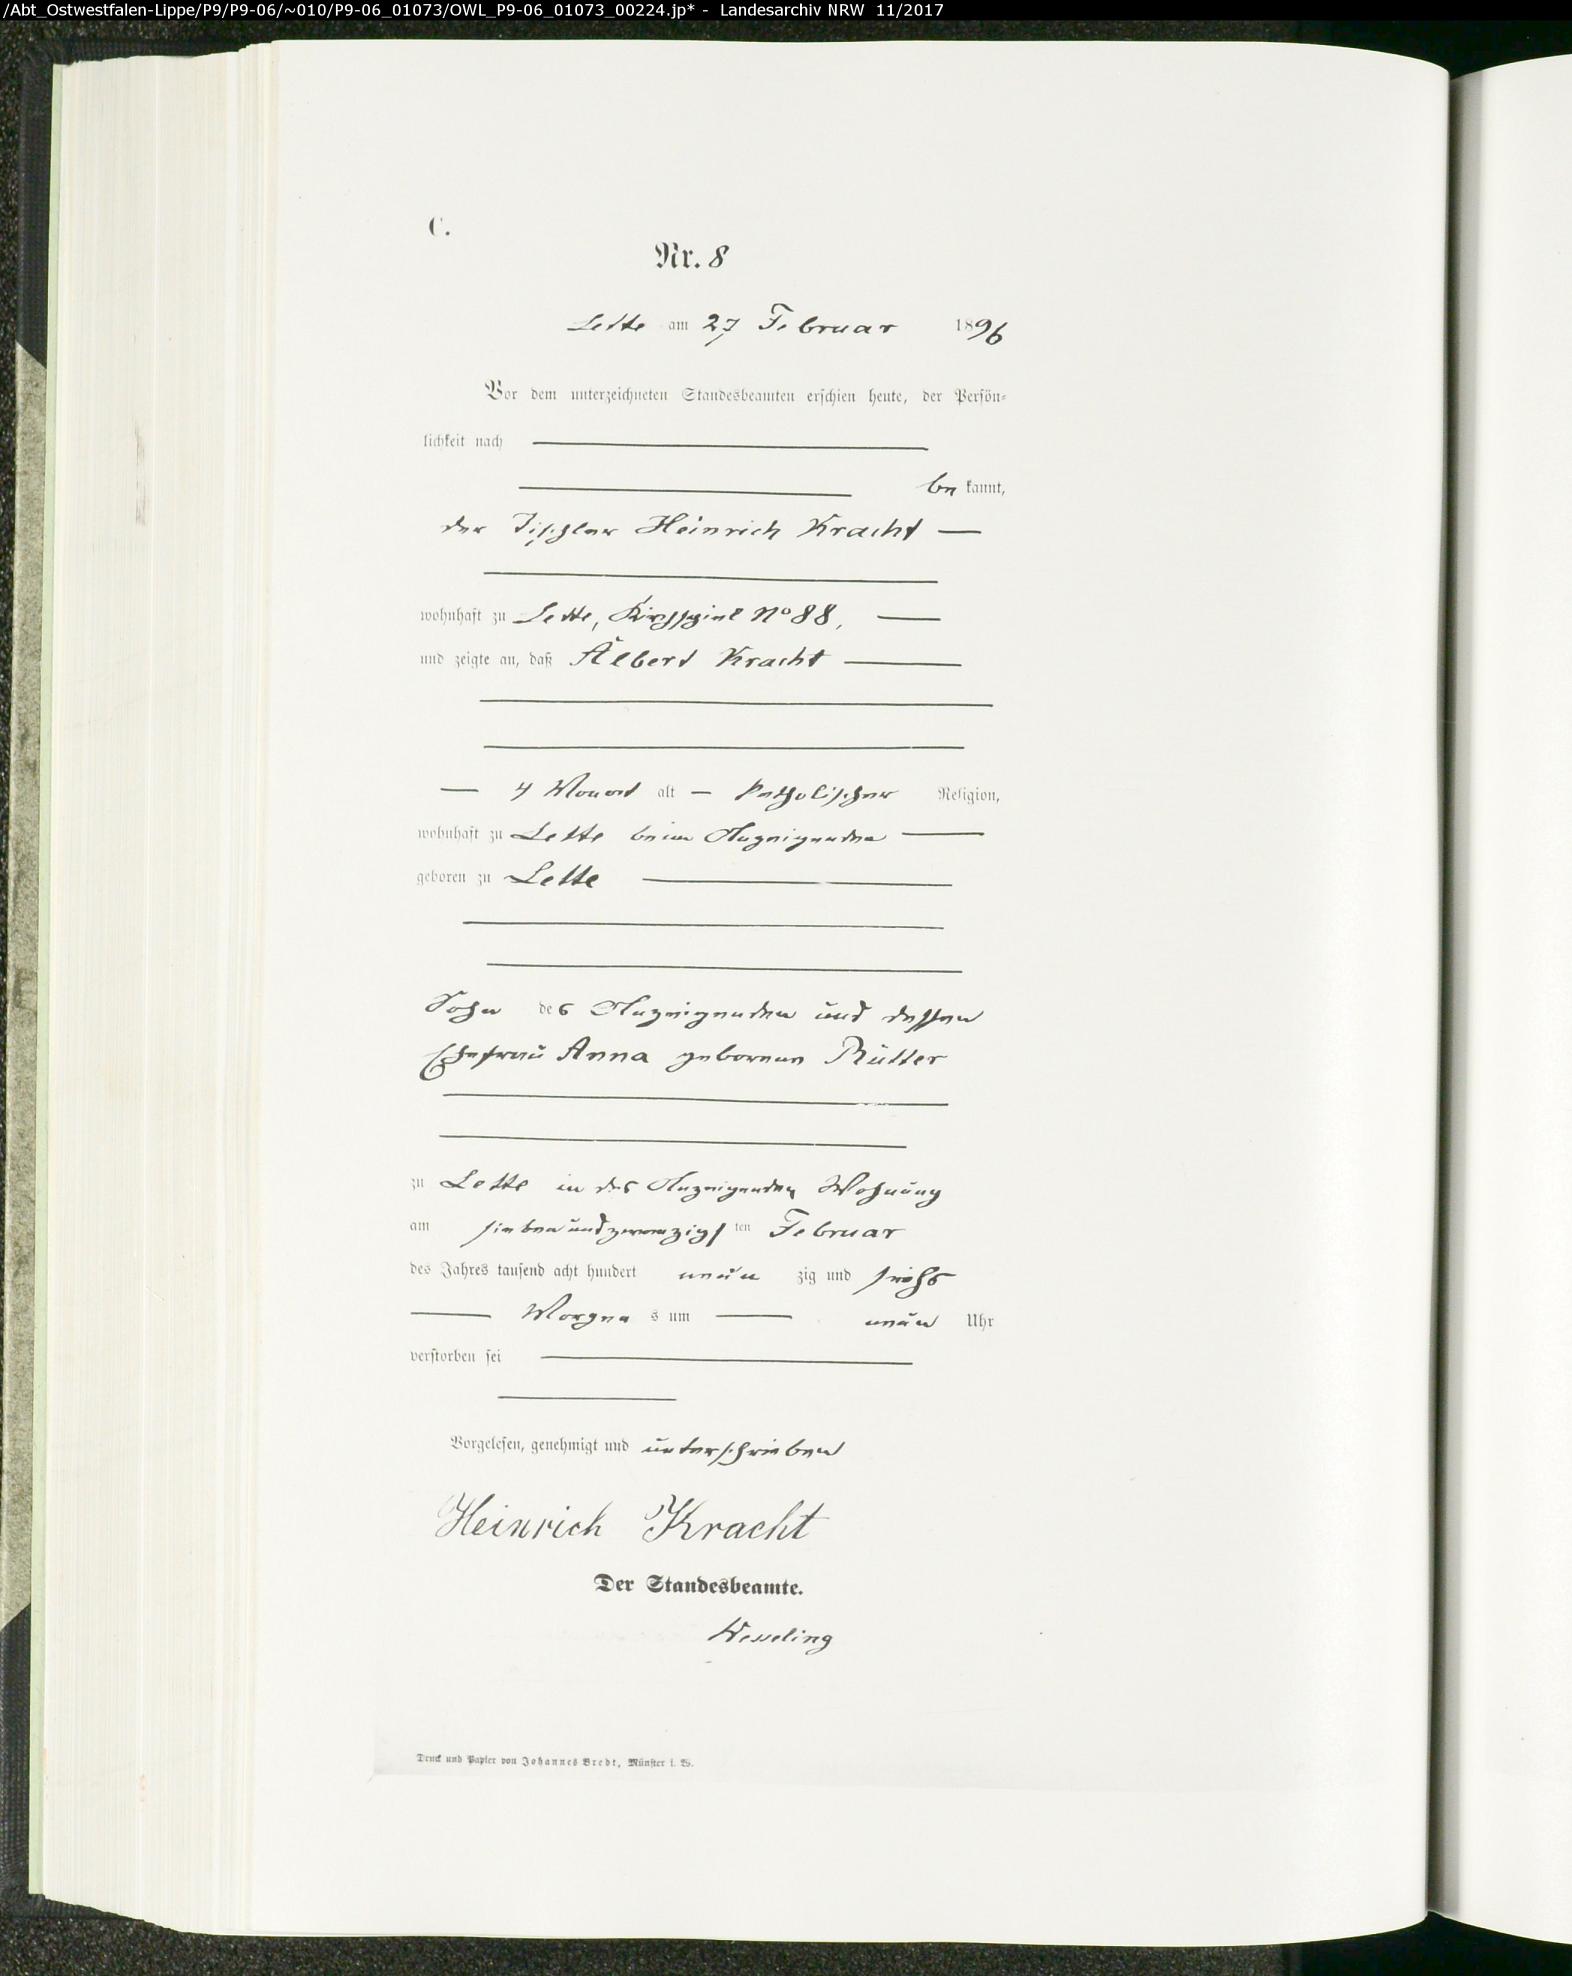 /Abt_Ostwestfalen-Lippe/P9/P9-06/~010/P9-06_01073/OWL_P9-06_01073_00224.jp* - Landesarchiv NRW 11/2017
C.
Nr. 8
Lette am 27 Februar 1896
Vor dem unterzeichneten Standesbeamten erschien heute, der Persön-
lichkeit nach
be kannt,
der Tischler Heinrich Kracht
wohnhaft zu Lette, Kirchspiel No 88,
und zeigte an, daß Albert Kracht
4 Monat alt katholischer Religion,
wohnhaft zu Lette beim Anzeigenden
geboren zu Lette
Sohn des Anzeigenden und dessen
Ehefrau Anna geborenen Rütter
zu Lette in des Anzeigenden Wohnung
am siebenundzwanzigsten Februar
des Jahres tausend acht hundert neun zig und sechs
Morgens um neun Uhr
verstorben sei
Vorgelesen, genehmigt und unterschrieben
Heinrich Kracht
Der Standesbeamte.
Wesseling
Druck und Papier von Johannes Bredt, Münster i. W.